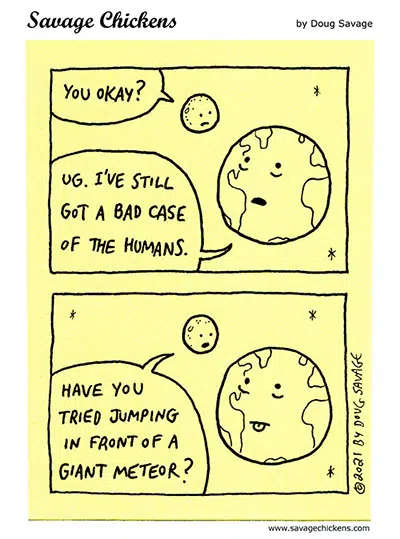 Savage Chickens
by Doug Savage
YOU OKAY?
UG. I'VE STILL
GOT A BAD CASE
OF THE HUMANS.
HAVE YOU
TRIED JUMPING
IN FRONT OF A
GIANT METEOR?
©2021 BY DOUG SAVAGE
www.savagechickens.com